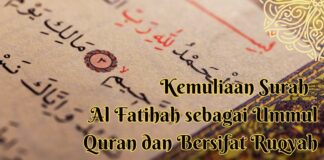 لِلَّهِ رَبِّ
مَالِكِ يَوْمِ
وَإِيَّاكَ
Kemuliaan Surah
Al Fatihah sebagai Ummul
Quran dan Bersifat Ruqyah